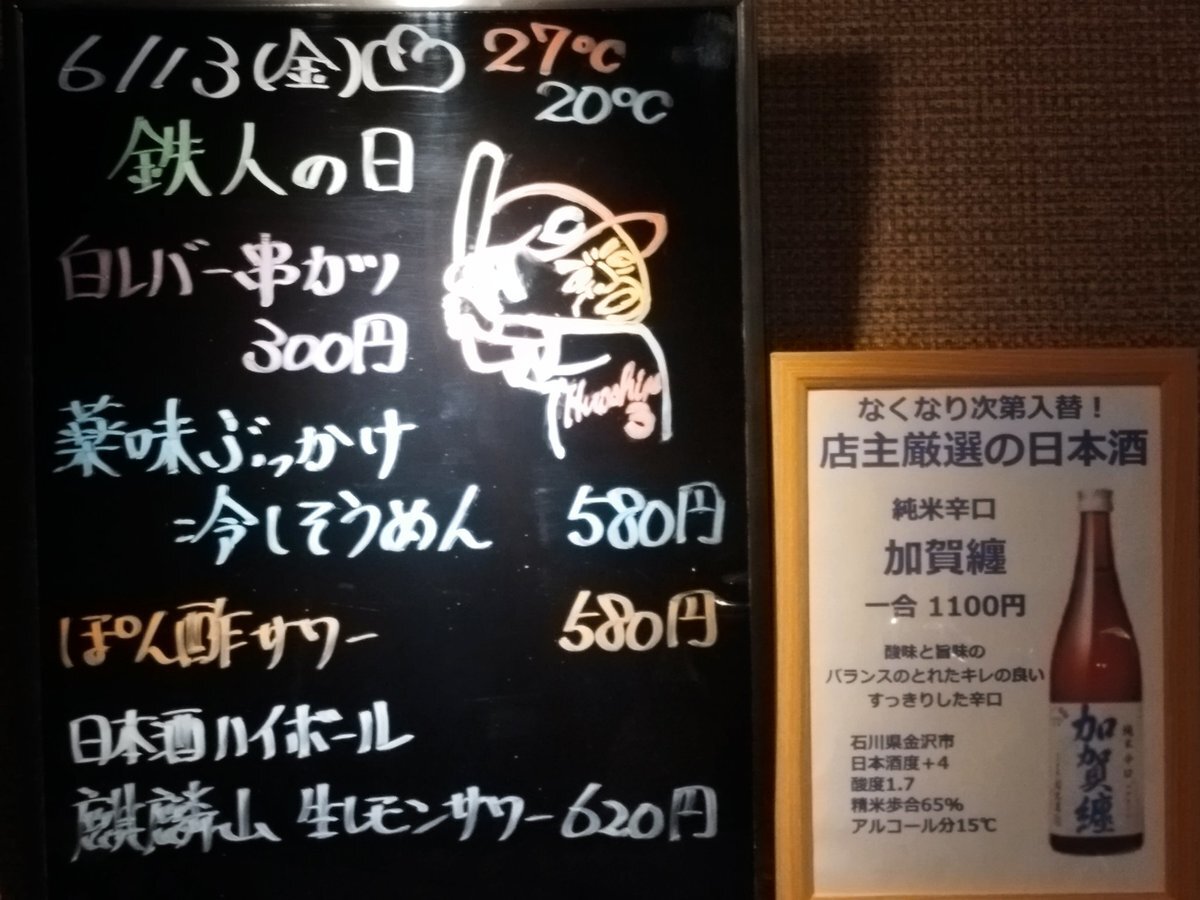 6/13(金) 27℃
20℃
鉄人の日
白レバー串カツ
300円
薬味ぶっかけ
冷しそうめん 580円
ぽん酢サワー 580円
日本酒ハイボール
麒麟山 生レモンサワー 620円
3
なくなり次第入替！
店主厳選の日本酒
純米辛口
加賀纏
一合 1100円
酸味と旨味の
バランスのとれたキレの良い
すっきりした辛口
石川県金沢市
日本酒度＋4
酸度1.7
精米歩合65%
アルコール分15℃
純米辛口
加賀纏